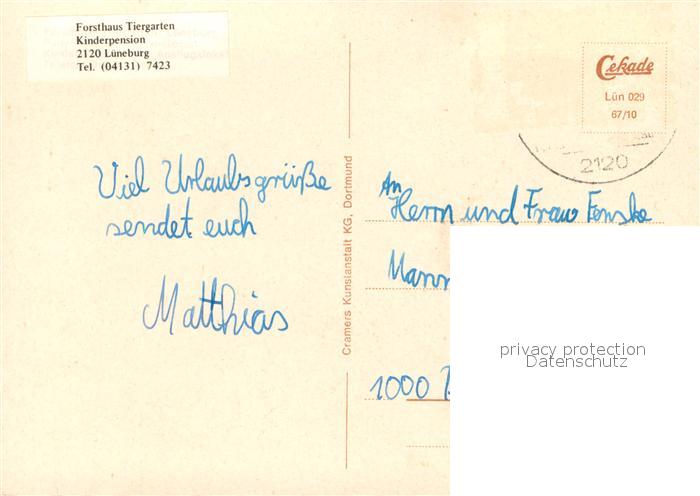 Forsthaus Tiergarten
Kinderpension
2120 Lüneburg
Tel. (04131) 7423
Viel Urlaubsgrüße
sendet euch
Matthias
Cramers Kunstanstalt KG, Dortmund
Cekade
Lün 029
67/10
2120
An
Herrn und Frau Fenske
1000
privacy protection
Datenschutz